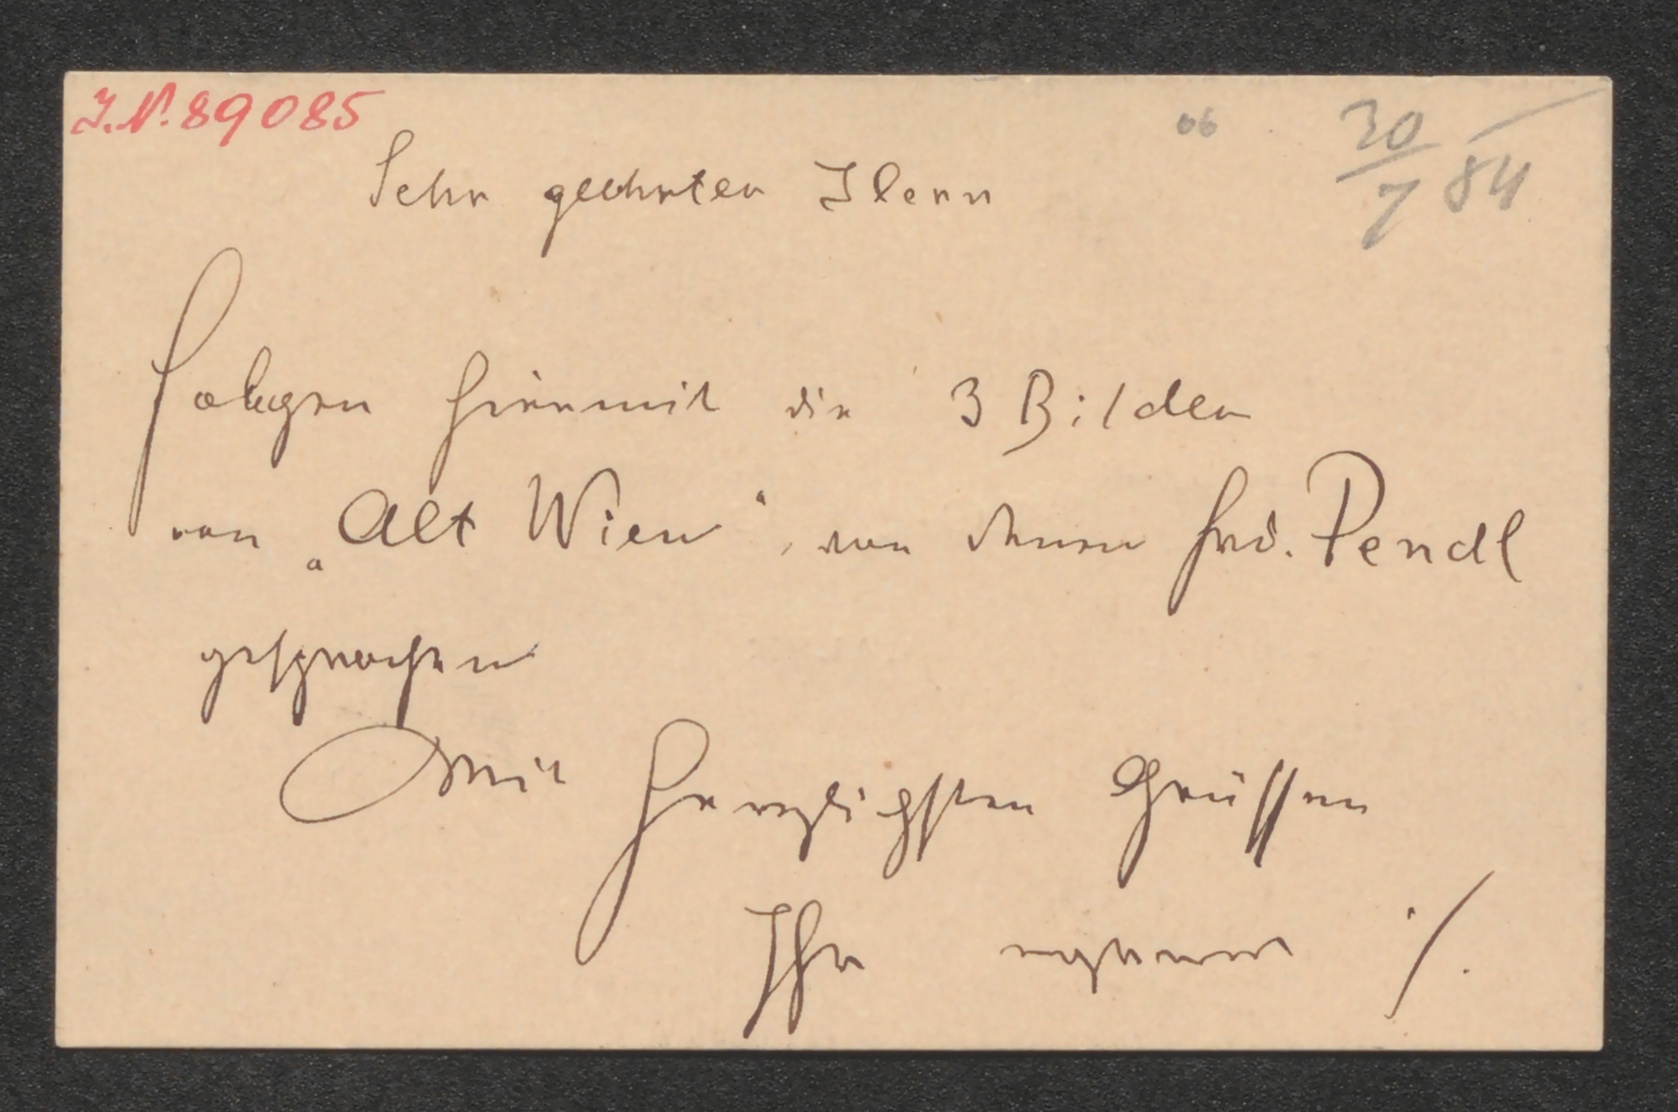 J.N. 89085
06
30/7 84
Sehr geehrter Herr
Folgen hiermit die 3 Bilder
von „Alt Wien“, von denen Frd. Pendl
gesprochen
Mit herzlichsten Grüssen
Ihr ergebener ./.